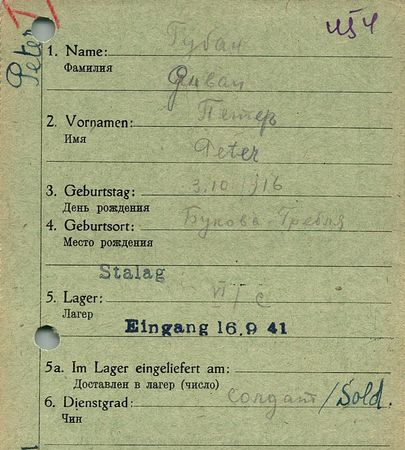 Peter
1. Name:
Фамилия
2. Vornamen: Петер
Имя
Peter
3. Geburtstag: 3.10 1916
День рождения
4. Geburtsort: Букова-Гребля
Место рождения
Stalag
5. Lager: VI/c
Лагер
Eingang 16.9 41
5a. Im Lager eingeliefert am:
Доставлен в лагер (число)
6. Dienstgrad: /Sold.
Чин